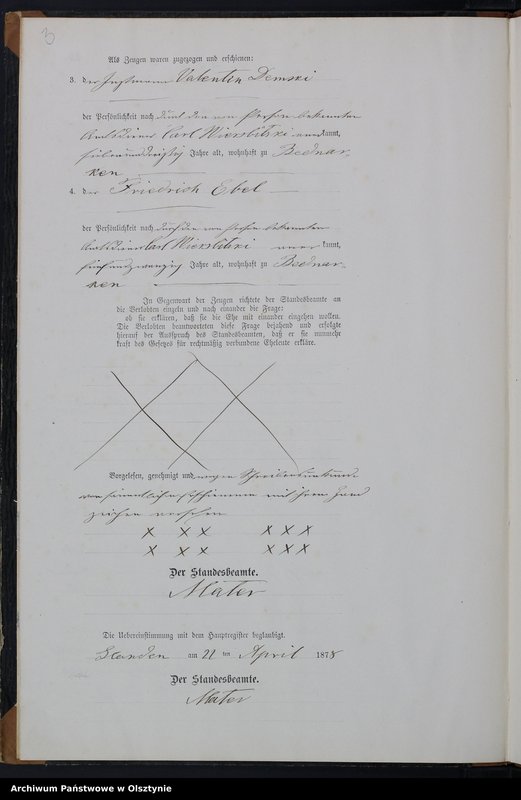 3
Als Zeugen waren zugezogen und erschienen:
3. der Instmann Valentin Demski
der Persönlichkeit nach durch den von Person bekannten
Amtsdiener Carl Wierzbitzki anerkannt,
siebenunddreißig Jahre alt, wohnhaft zu Bednar-
ken
4. der Friedrich Ebel
der Persönlichkeit nach durch den von Person bekannten
Amtsdiener Carl Wierzbitzki anerkannt,
fünfundzwanzig Jahre alt, wohnhaft zu Bednar-
ken
In Gegenwart der Zeugen richtete der Standesbeamte an
die Verlobten einzeln und nach einander die Frage:
ob sie erklären, daß sie die Ehe mit einander eingehen wollen.
Die Verlobten beantworteten diese Frage bejahend und erfolgte
hierauf der Ausspruch des Standesbeamten, daß er sie nunmehr
kraft des Gesetzes für rechtmäßig verbundene Eheleute erkläre.
Vorgelesen, genehmigt und wegen Schreibensunkunde
von sämmtlichen Erschienenen mit ihrem Hand
zeichen versehen
x x x x x x
x x x x x x
Der Standesbeamte.
Mater
Die Uebereinstimmung mit dem Hauptregister beglaubigt.
am 22 ten April 1878
Der Standesbeamte.
Mater
Archiwum Państwowe w Olsztynie